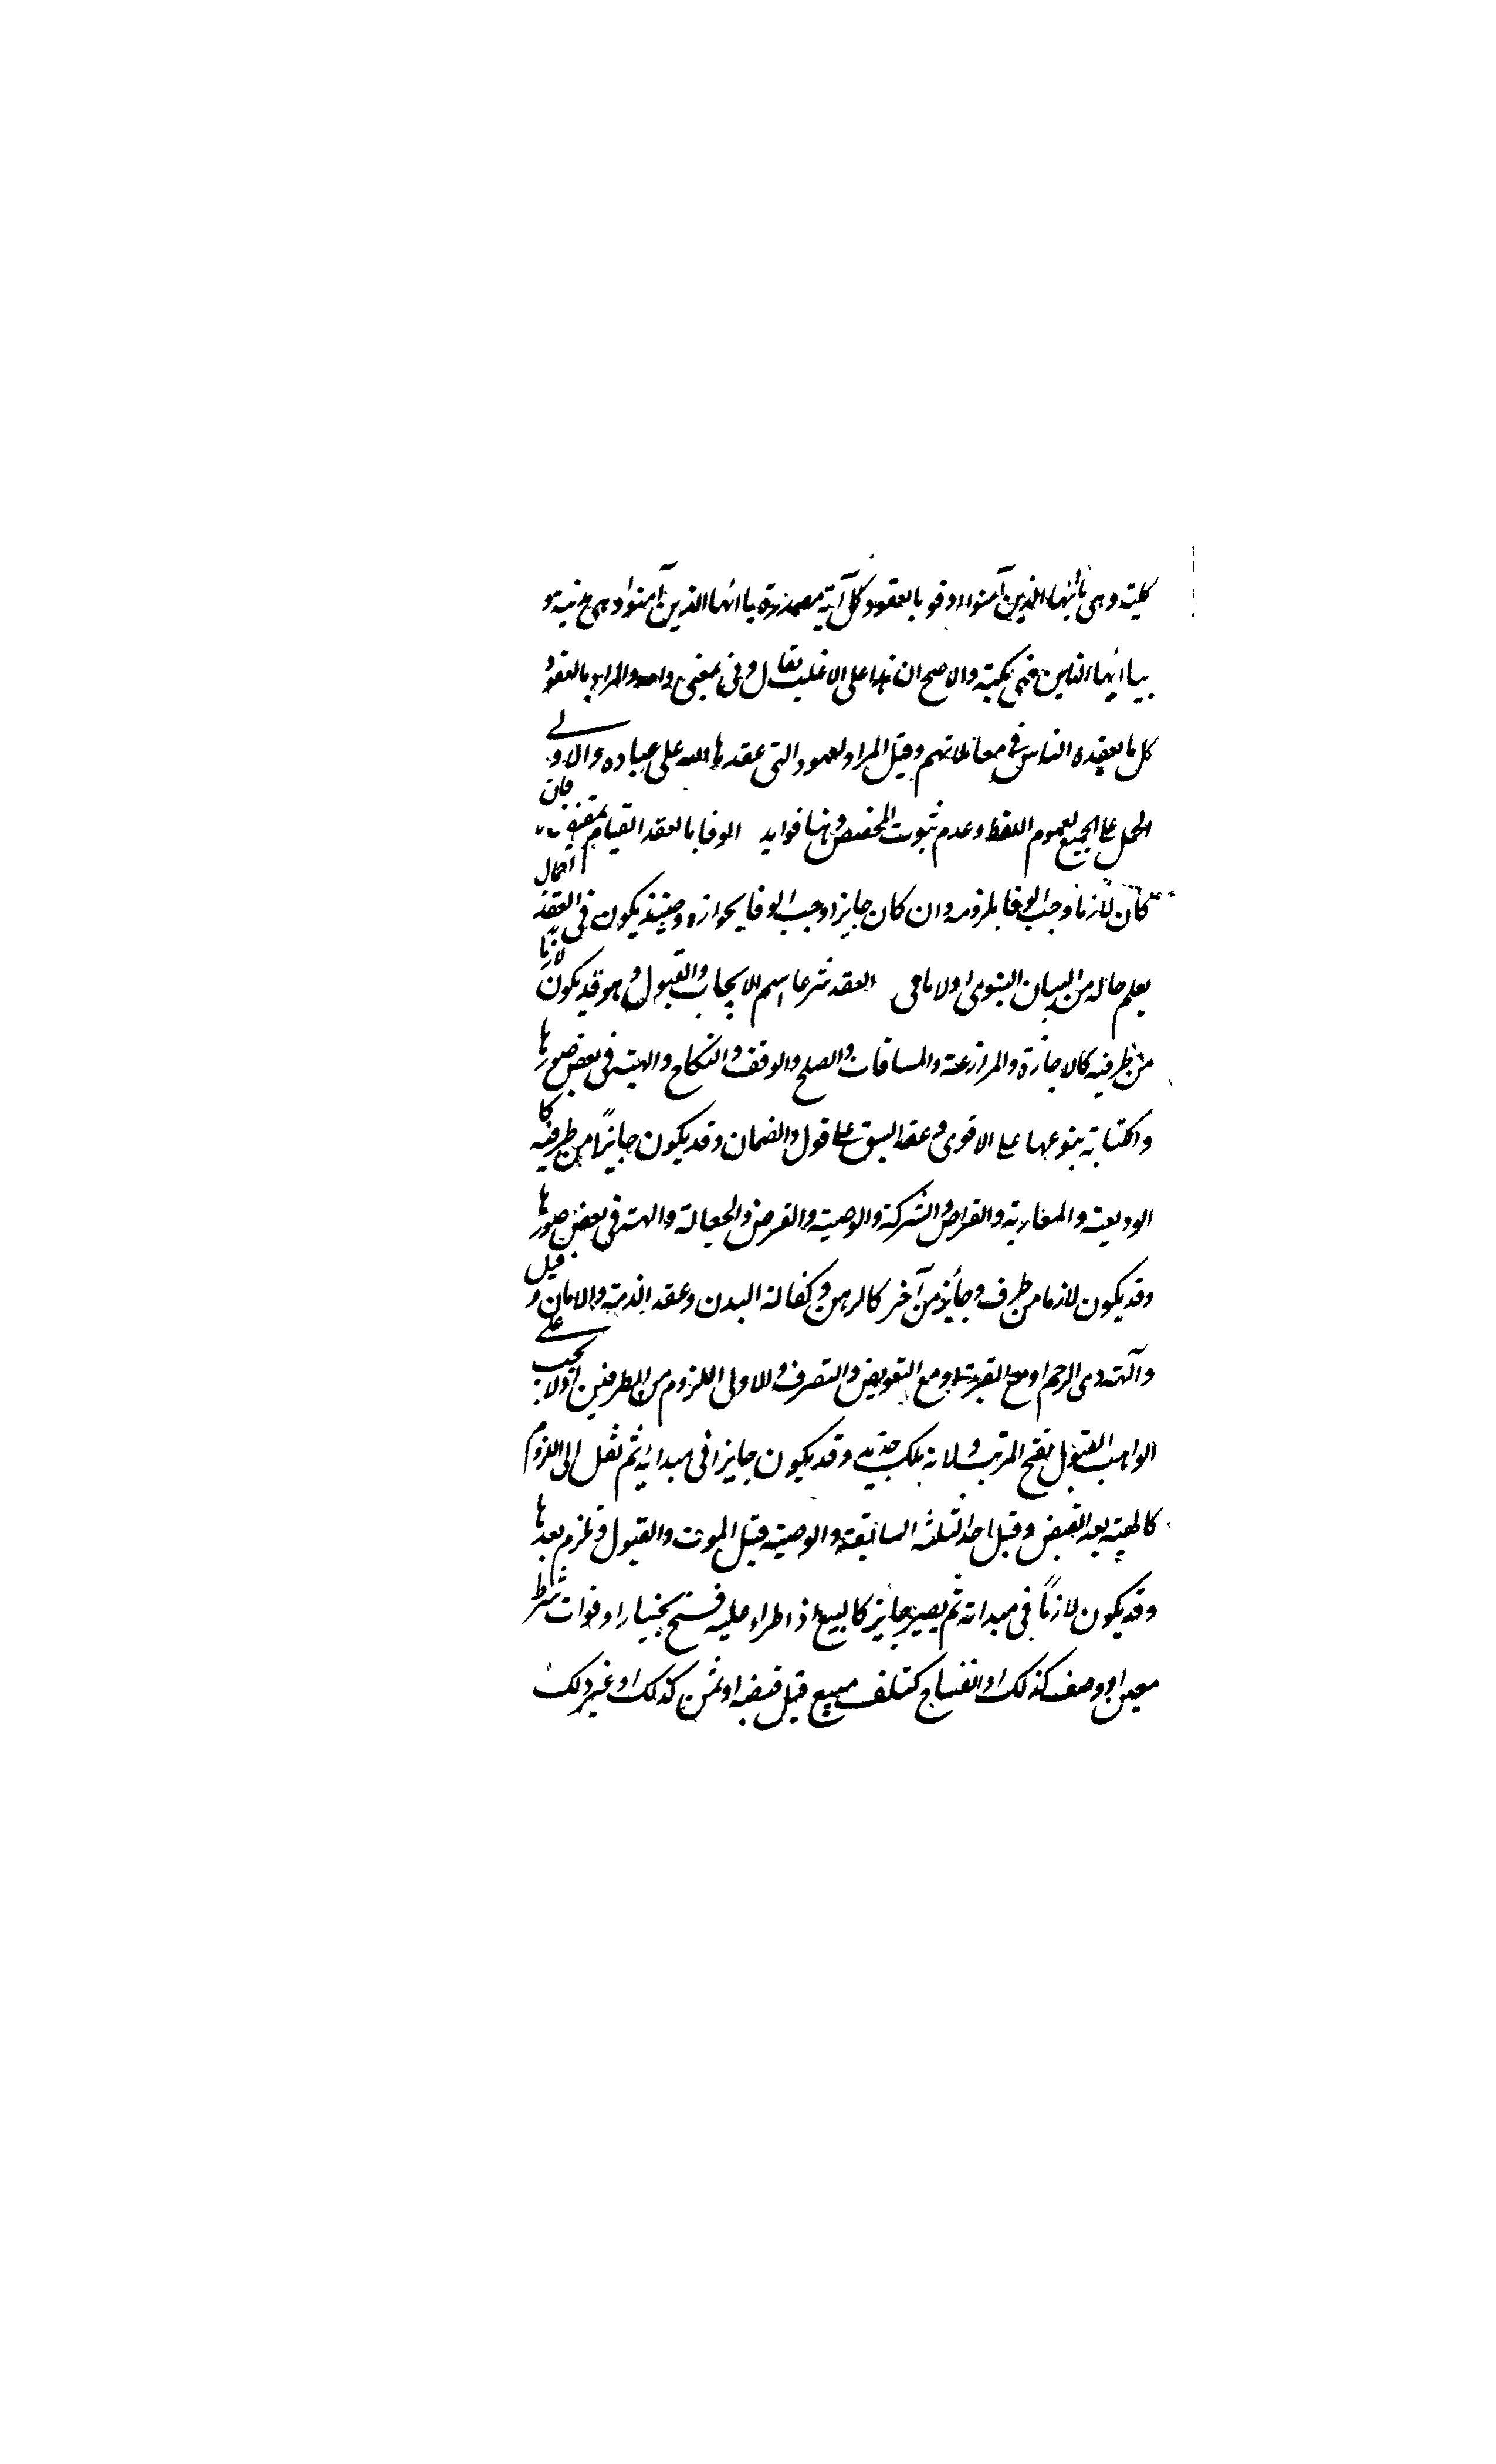 كلية وهى يا ايها الذين آمنوا اوفوا بالعقود كل آية مصدرة يا ايها الذين آمنوا وهى مدنية و
بيا ايها الناس فهى مكية والاصح ان هذا على الاغلب يقال وفى بمعنى واحد والمراد بالعقود
كل ما يعقده الناس فى معاملاتهم وقيل المراد لعهود التى عقدها الله على عباده والاولى
الحمل على الجميع لعموم اللفظ وعدم ثبوت المخصص وهنا فوايد الوفا بالعقد القيام بمقتضاه فان
كان لازما وجب الوفا بلزومه وان كان جايزا وجب الوفا بجوازه وحينئذ يكون فى العقد اجمال
يعلم حاله من البيان النبوى او الامامى العقد شرعا اسم للايجاب والقبول وهو قد يكون لازما
من طرفيه كالاجازة والمزارعة والمساقات والصلح والوقف والنكاح والهبة فى بعض صورها
والكتابة بنوعيها على الاقوى وعقد السبق على قول والضمان وقد يكون جايزًا من طرفيه كا
الوديعة والمضاربة والقراض والشركة والوصية والقرض والجعالة والهبة فى بعض صورها
وقد يكون لازما من طرف وجائز من آخر كالرهن وكفالة البدن وعقد الذمة والامان و قيل
والهبة ذى الرحم او مع القربة او مع التعويض والتصرف والاولى اللزوم من الطرفين اذ لا يجب على
الواهب القبول بفتح المترتب ولانه ملك جديد وقد يكون جايزا فى مبدائه ثم نقل الى اللزوم
كالهبة بعد القبض وقبل احد الثلثه السابقة والوصية قبل الموت والقبول وتلزم بعدها
وقد يكون لازمًا فى مبدائه ثم يصير جايز كالبيع اذ اطراء عليه فسخ بخيار او فوات شرط
معين او وصف كذلك او انفساخ كتلف مبيع قبل قبضه او ثمن كذلك او غير ذلك